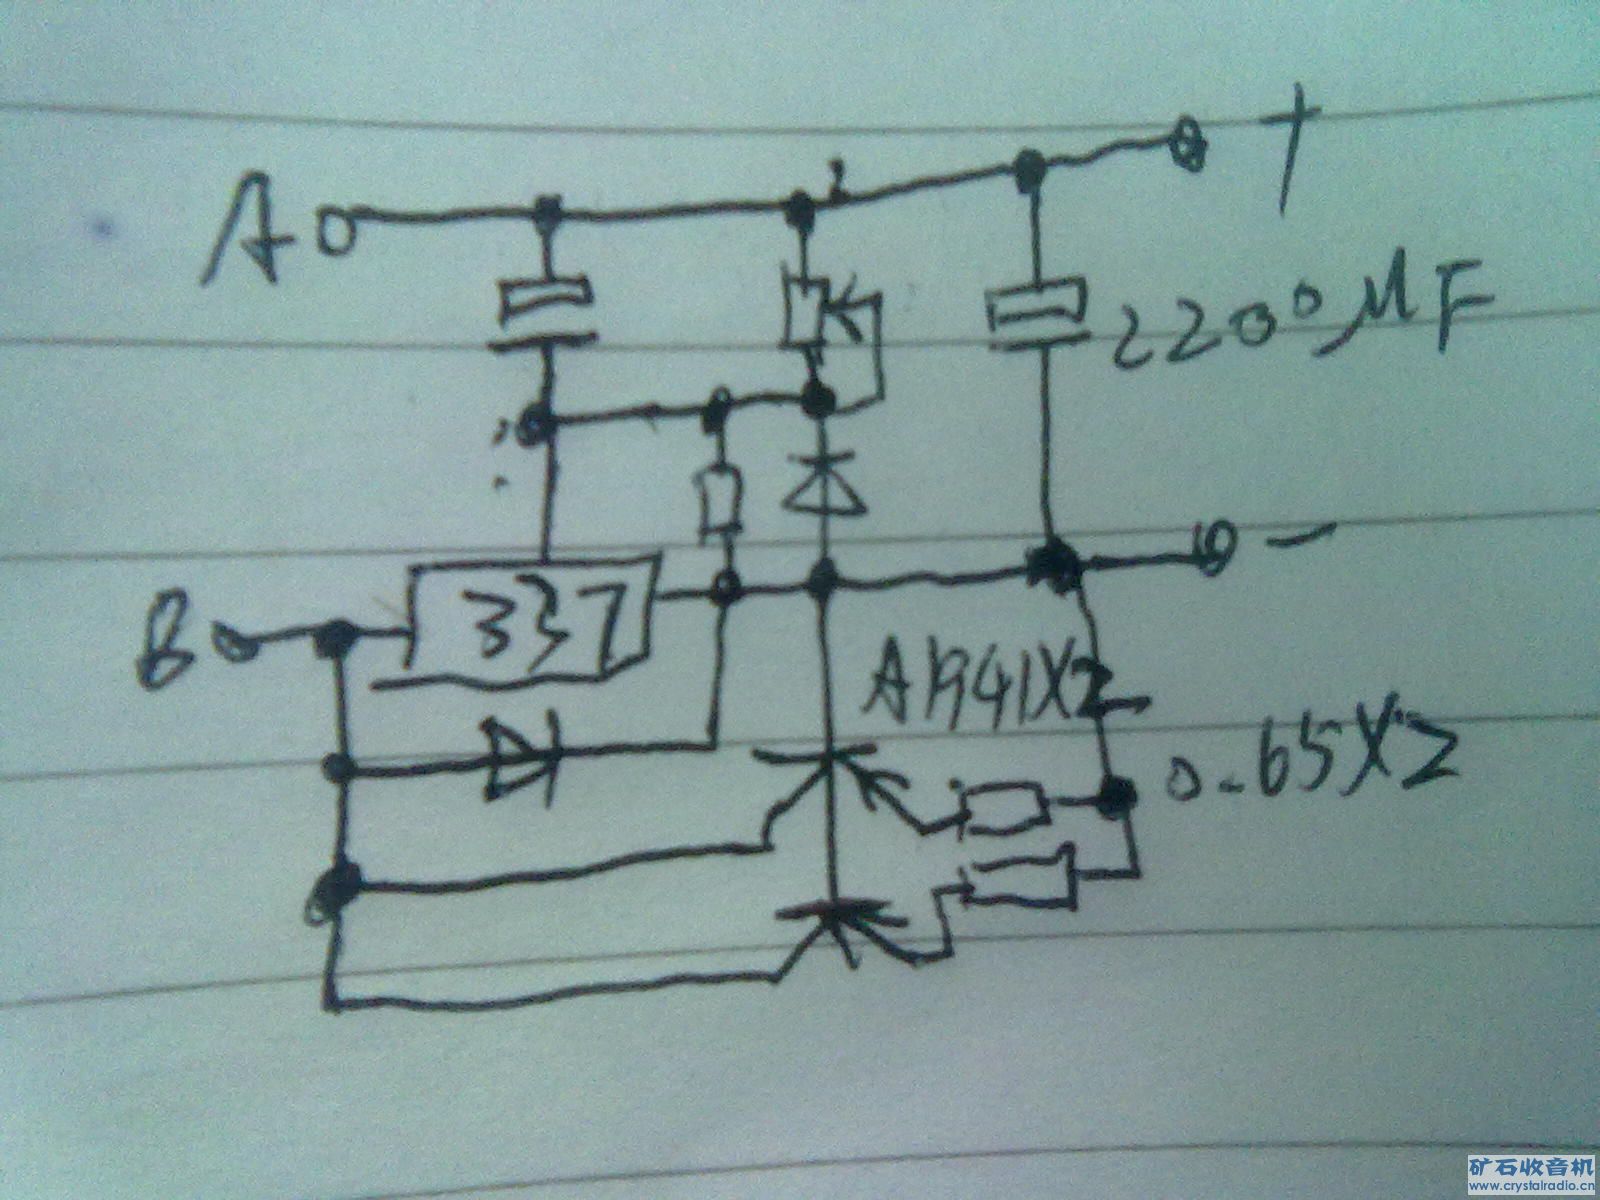 A
+
2200MF
-
B
337
A1941X2
0.65X2
矿石收音机
www.crystalradio.cn